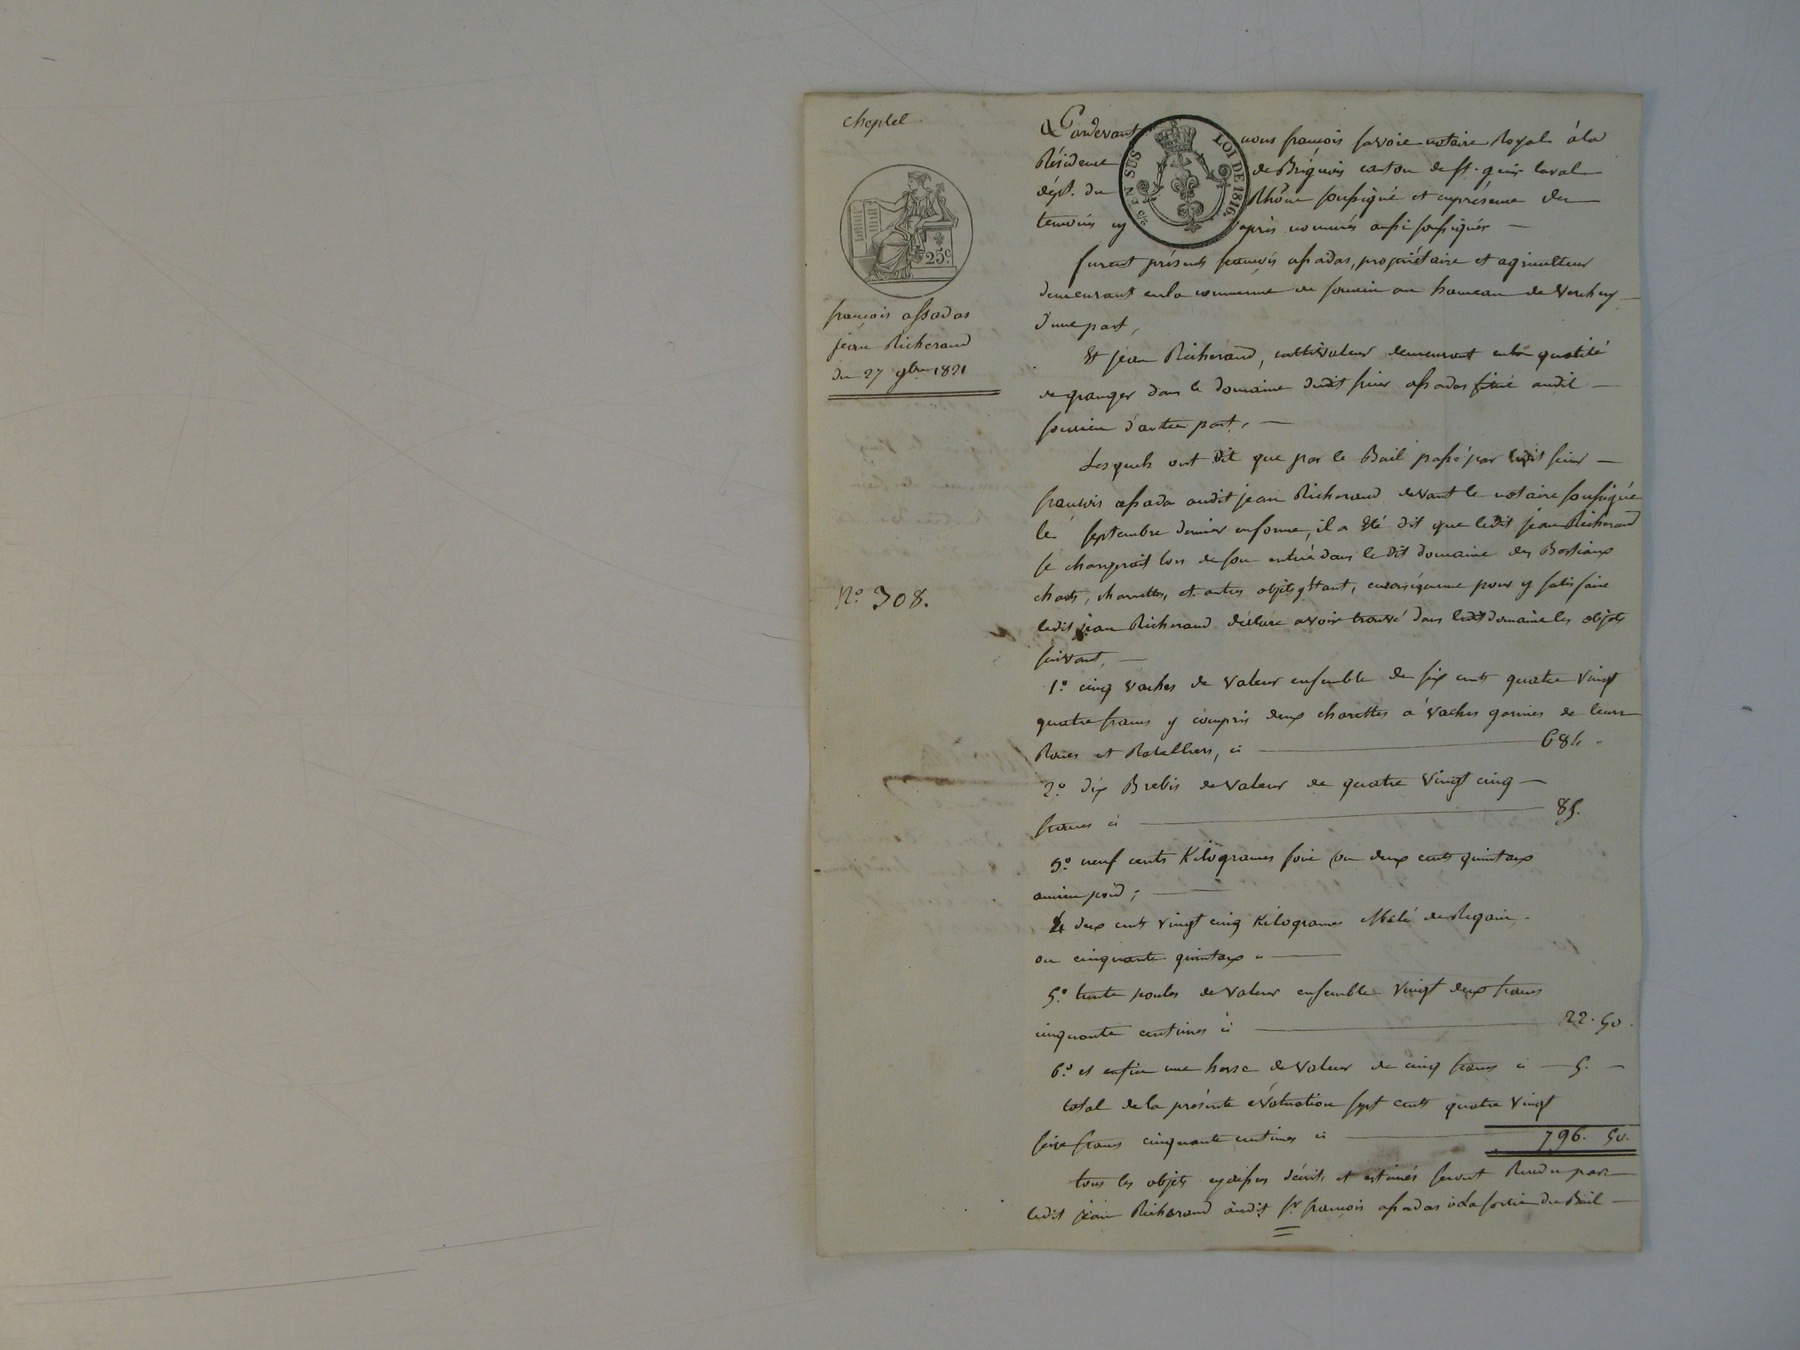 cheptel
25c
françois assadas
jean Richerand
du 27 9bre 1821
N.o 308.
EN SUS
LOI DE 1816.
Pardevant nous françois savoie notaire Royal à la
Résidence de Brignais canton de st. genis laval
dépt. du Rhône soussigné et en présence des
temoins cy après nommés aussi soussignés
furent présents françois assadas, propriétaire et agriculteur
demeurant en la commune de sourcieu au hameau de Verchery
d'une part,
Et jean Richerand, cultivateur demeurant en la qualité
de granger dans le domaine dudit sieur assadas situé audit
sourcieu d'autre part,
Lesquels ont dit que par le Bail passé par ledit sieur
françois assada audit jean Richerand devant le notaire soussigné
le septembre dernier enforme, il a été dit que ledit jean Richerand
se chargerait lors de son entrée dans le dit domaine des Bestiaux
chars, charrettes, et autres objets y étant, en conséquence pour y satisfaire
ledit jean Richerand déclare avoir trouvé dans ledit domaine les objets
suivant,
1.o cinq vaches de valeur ensemble de six cents quatre vingt
quatre francs y compris deux charettes à vaches garnies de leurs
Roues et Ratelliers, ci 684
2.o dix Brebis de valeur de quatre vingt cinq
francs ci 85.
3.o neuf cents Kilogrames foin ou deux cents quintaux
ancien poid;
4 deux cents vingt cinq Kilogrames Mêlé de Regain,
ou cinquante quintaux
5.o trente poules de valeur ensemble vingt deux francs
cinquante centimes ci 22. 50.
6.o et enfin une herse de valeur de cinq francs ci 5.
total de la présente évaluation sept cents quatre vingt
seize francs cinquante centimes ci 796. 50.
tous les objets cy dessus décrits et estimés seront Rendu par
ledit jean Richerand audit sr. françois assadas à la sortie du Bail